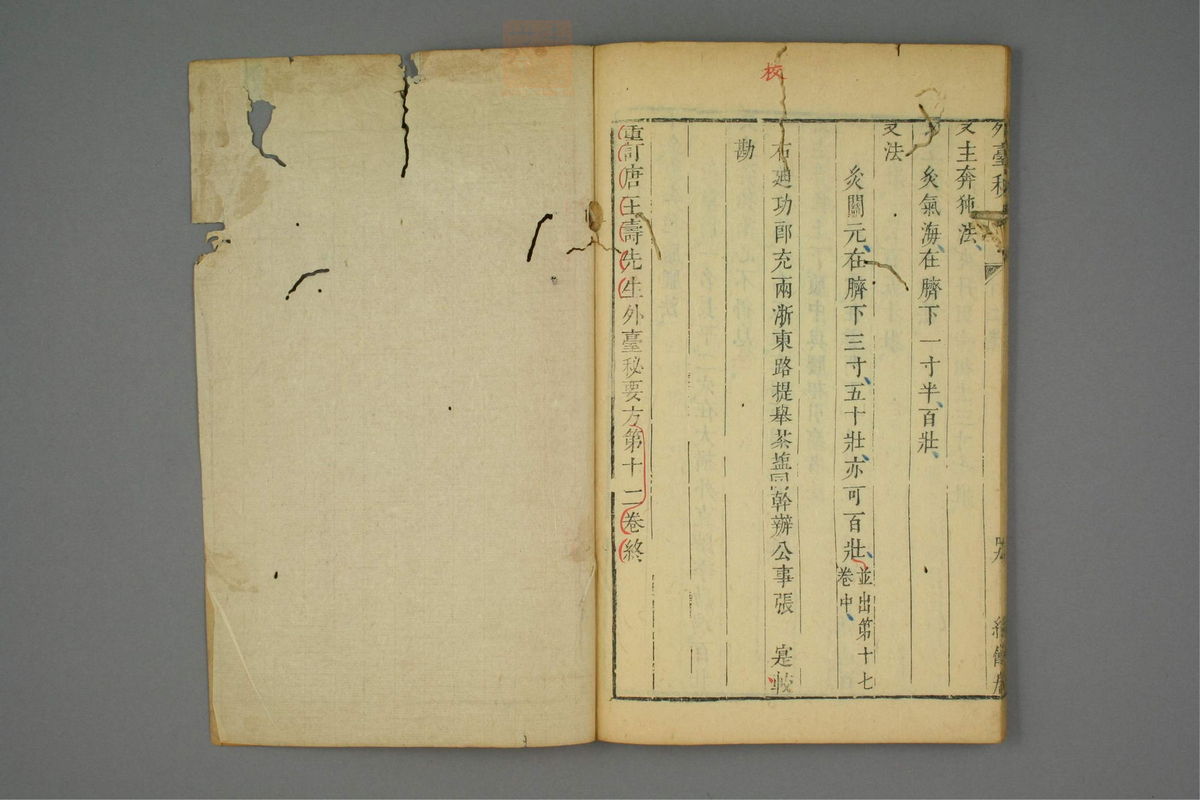 校
外臺秘
又主奔㹠法
灸氣海在臍下一寸半百壯
又法
灸關元在臍下三寸五十壯亦可百壯並出第十七卷中
右迪功郎充兩浙東路提舉茶鹽司幹辦公事張 寔較
勘
重訂唐王燾先生外臺秘要方第十二卷終